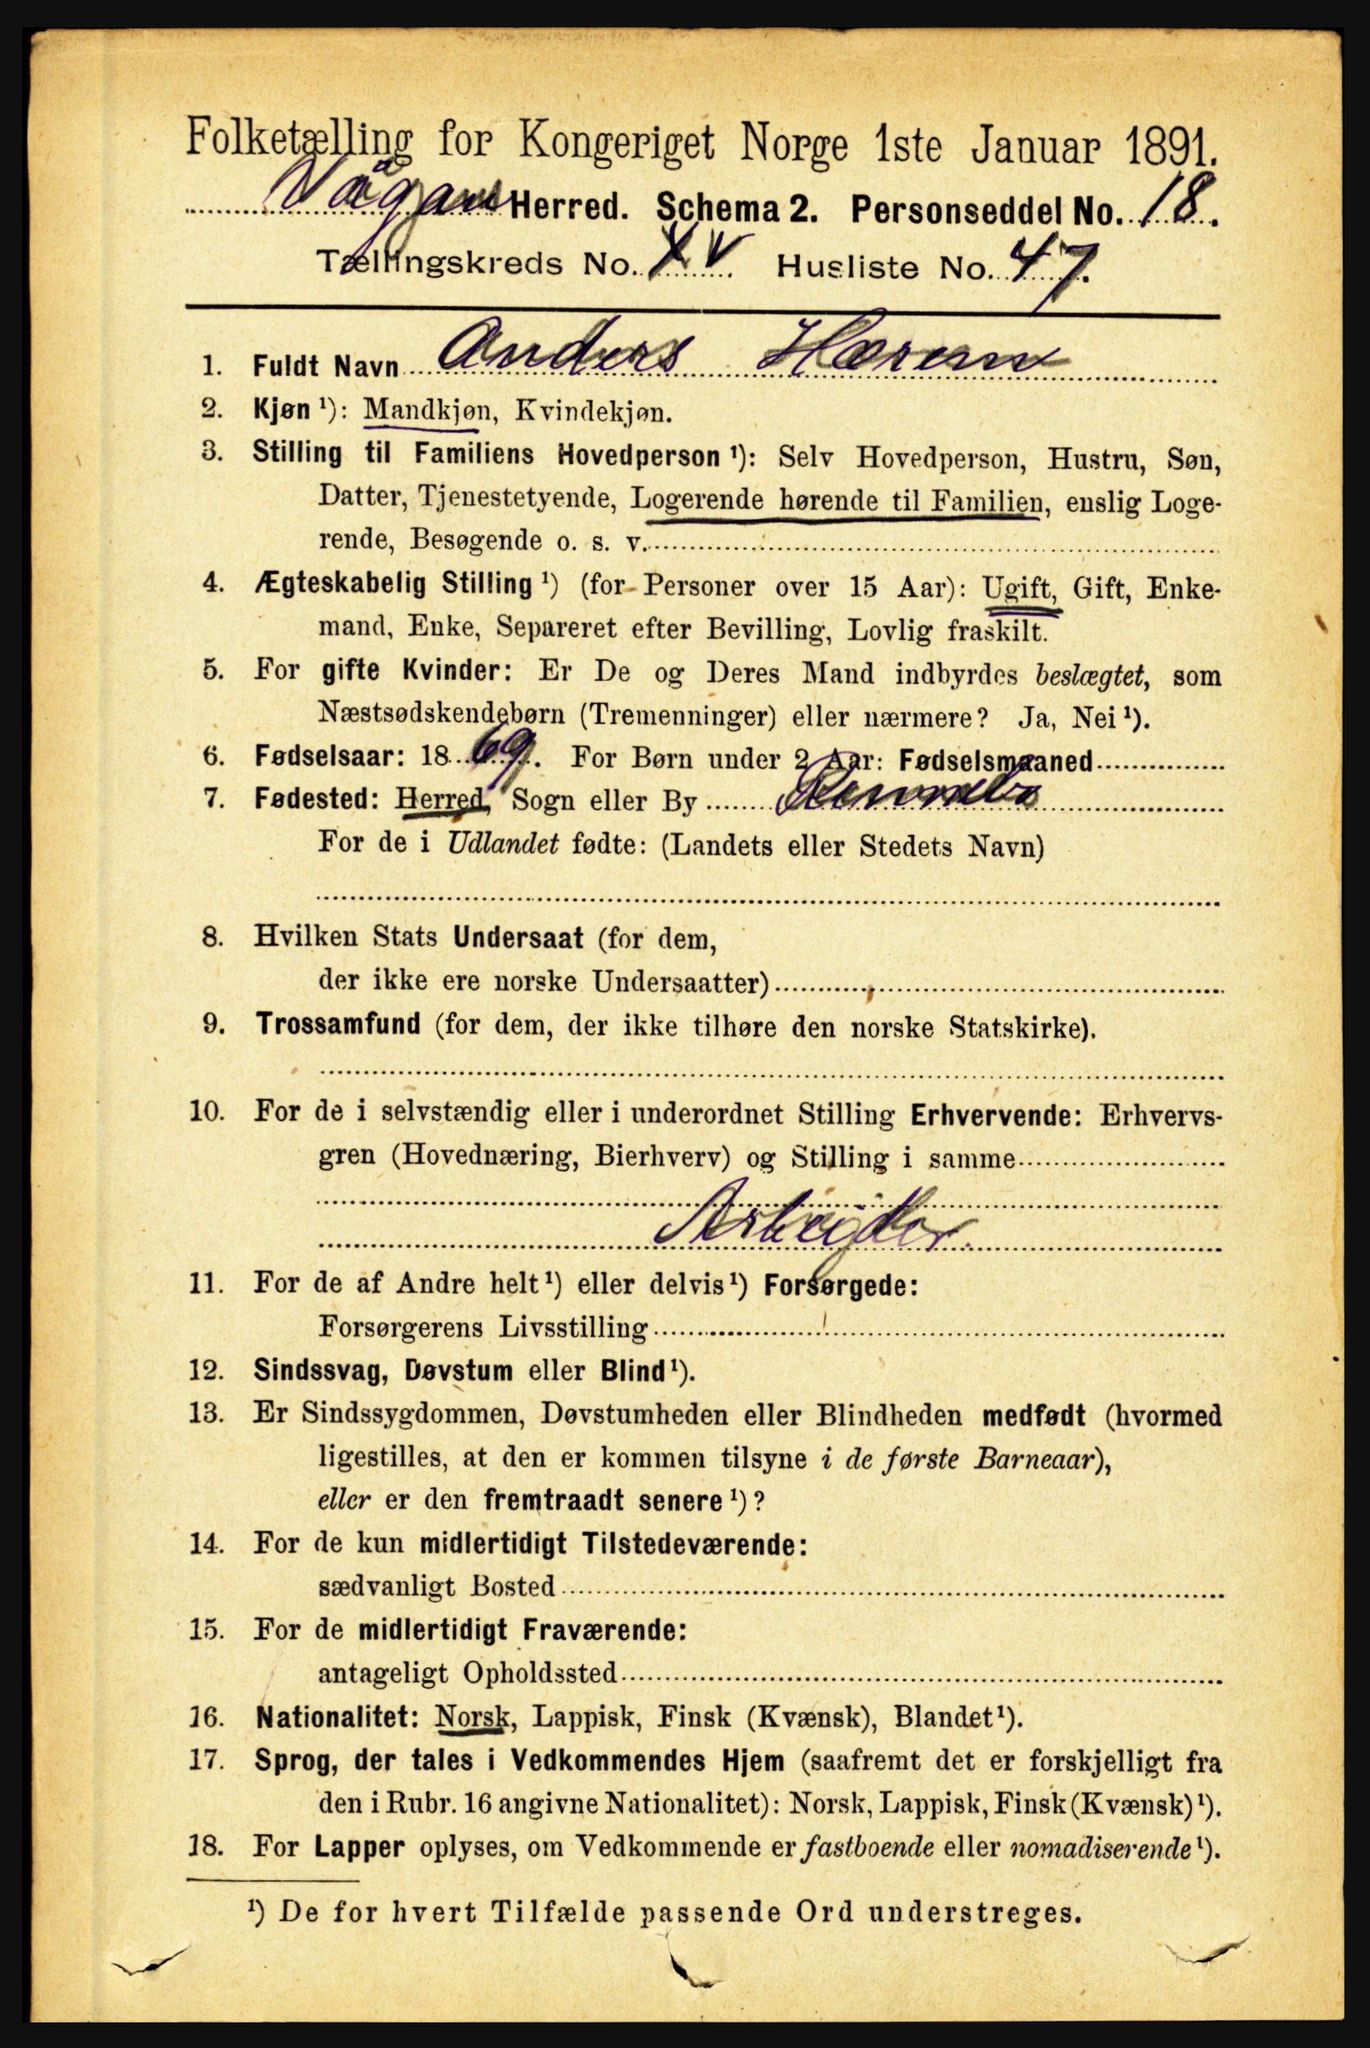 Folketælling for Kongeriget Norge 1ste Januar 1891.
Vågan Herred. Schema 2. Personseddel No. 18.
Tællingskreds No. XV Husliste No. 47.
1. Fuldt Navn Anders Hærem
2. Kjøn ¹): Mandkjøn, Kvindekjøn.
3. Stilling til Familiens Hovedperson ¹): Selv Hovedperson, Hustru, Søn,
Datter, Tjenestetyende, Logerende hørende til Familien, enslig Loge-
rende, Besøgende o. s. v.
4. Ægteskabelig Stilling ¹) (for Personer over 15 Aar): Ugift, Gift, Enke-
mand, Enke, Separeret efter Bevilling, Lovlig fraskilt.
5. For gifte Kvinder: Er De og Deres Mand indbyrdes beslægtet, som
Næstsødskendebørn (Tremenninger) eller nærmere? Ja, Nei ¹).
6. Fødselsaar: 1869. For Børn under 2 Aar: Fødselsmaaned
7. Fødested: Herred, Sogn eller By
For de i Udlandet fødte: (Landets eller Stedets Navn)
8. Hvilken Stats Undersaat (for dem,
der ikke ere norske Undersaatter)
9. Trossamfund (for dem, der ikke tilhøre den norske Statskirke).
10. For de i selvstændig eller i underordnet Stilling Erhvervende: Erhvervs-
gren (Hovednæring, Bierhverv) og Stilling i samme
Arbeider.
11. For de af Andre helt ¹) eller delvis ¹) Forsørgede:
Forsørgerens Livsstilling
12. Sindssvag, Døvstum eller Blind ¹).
13. Er Sindssygdommen, Døvstumheden eller Blindheden medfødt (hvormed
ligestilles, at den er kommen tilsyne i de første Barneaar),
eller er den fremtraadt senere ¹)?
14. For de kun midlertidigt Tilstedeværende:
sædvanligt Bosted
15. For de midlertidigt Fraværende:
antageligt Opholdssted
16. Nationalitet: Norsk, Lappisk, Finsk (Kvænsk), Blandet ¹).
17. Sprog, der tales i Vedkommendes Hjem (saafremt det er forskjelligt fra
den i Rubr. 16 angivne Nationalitet): Norsk, Lappisk, Finsk (Kvænsk) ¹).
18. For Lapper oplyses, om Vedkommende er fastboende eller nomadiserende ¹).
¹) De for hvert Tilfælde passende Ord understreges.